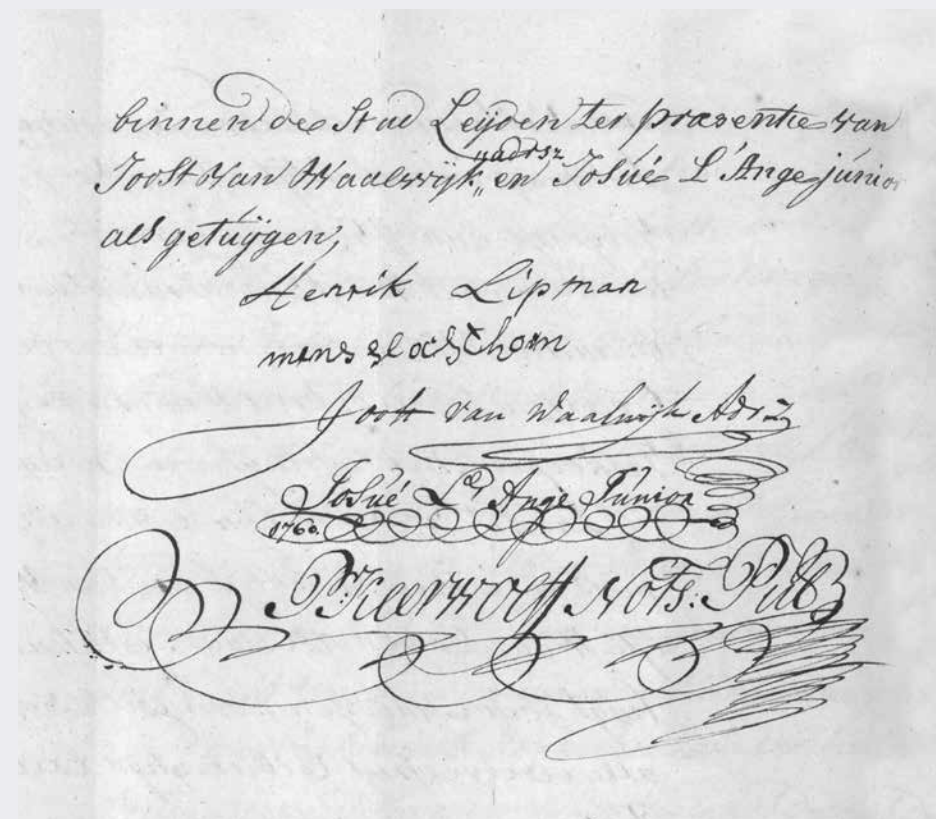 binnen de Stad Leyden ter præsentie van
Joost van Waalwijk „ adrsz en Josúé L'Ange júnior
als getuÿgen,
Henrik Lipman
Joost van Waalwijk Adrz
Josúé L' Ange Júnior
1760.
Pr. Keerwolff Nots. Pub